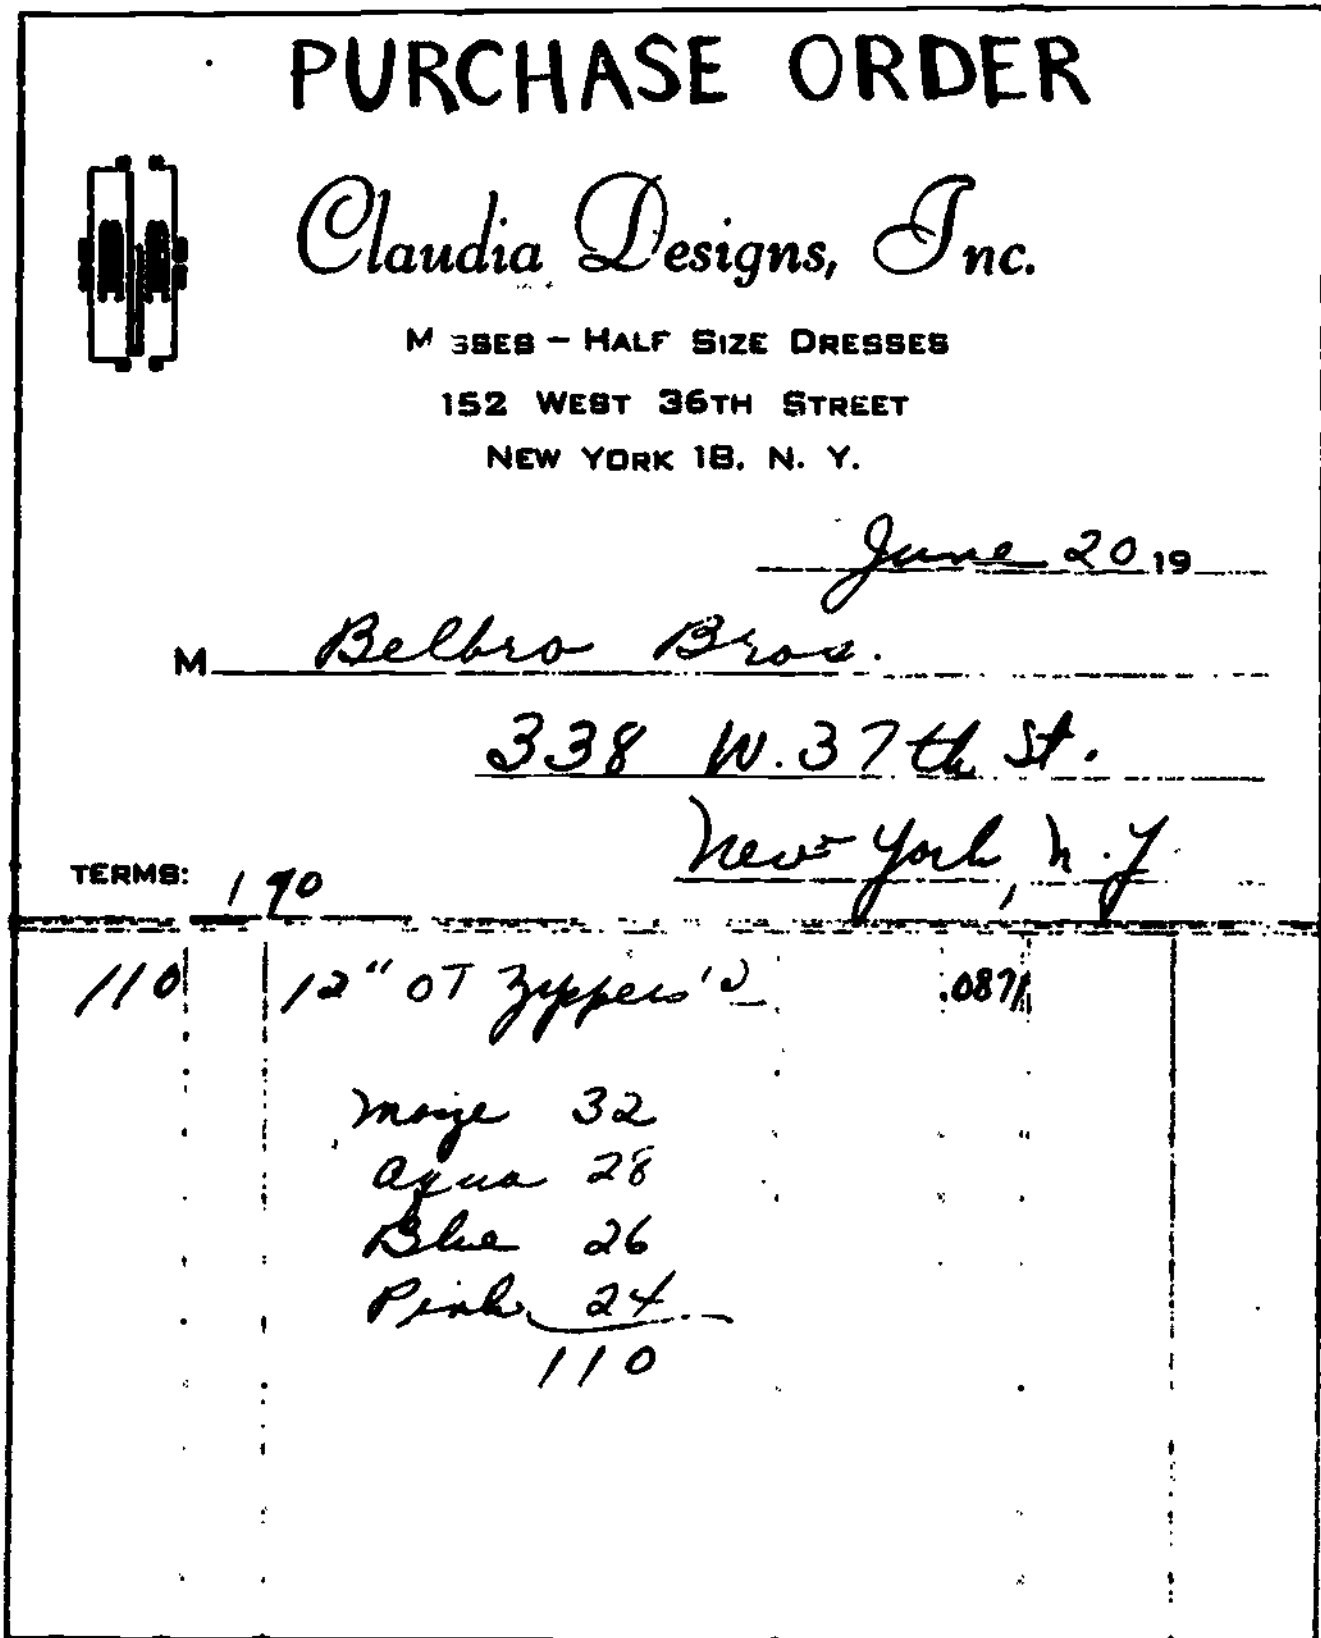 PURCHASE ORDER
Claudia Designs, Inc.
M SSES – HALF SIZE DRESSES
152 WEST 36TH STREET
NEW YORK 18, N. Y.
June 20 19
M Belbro Bros.
338 W. 37th St.
New York, N.Y
TERMS:
110 12" OT Zippers
Maize 32
Aqua 28
Blue 26
Pink 24
110